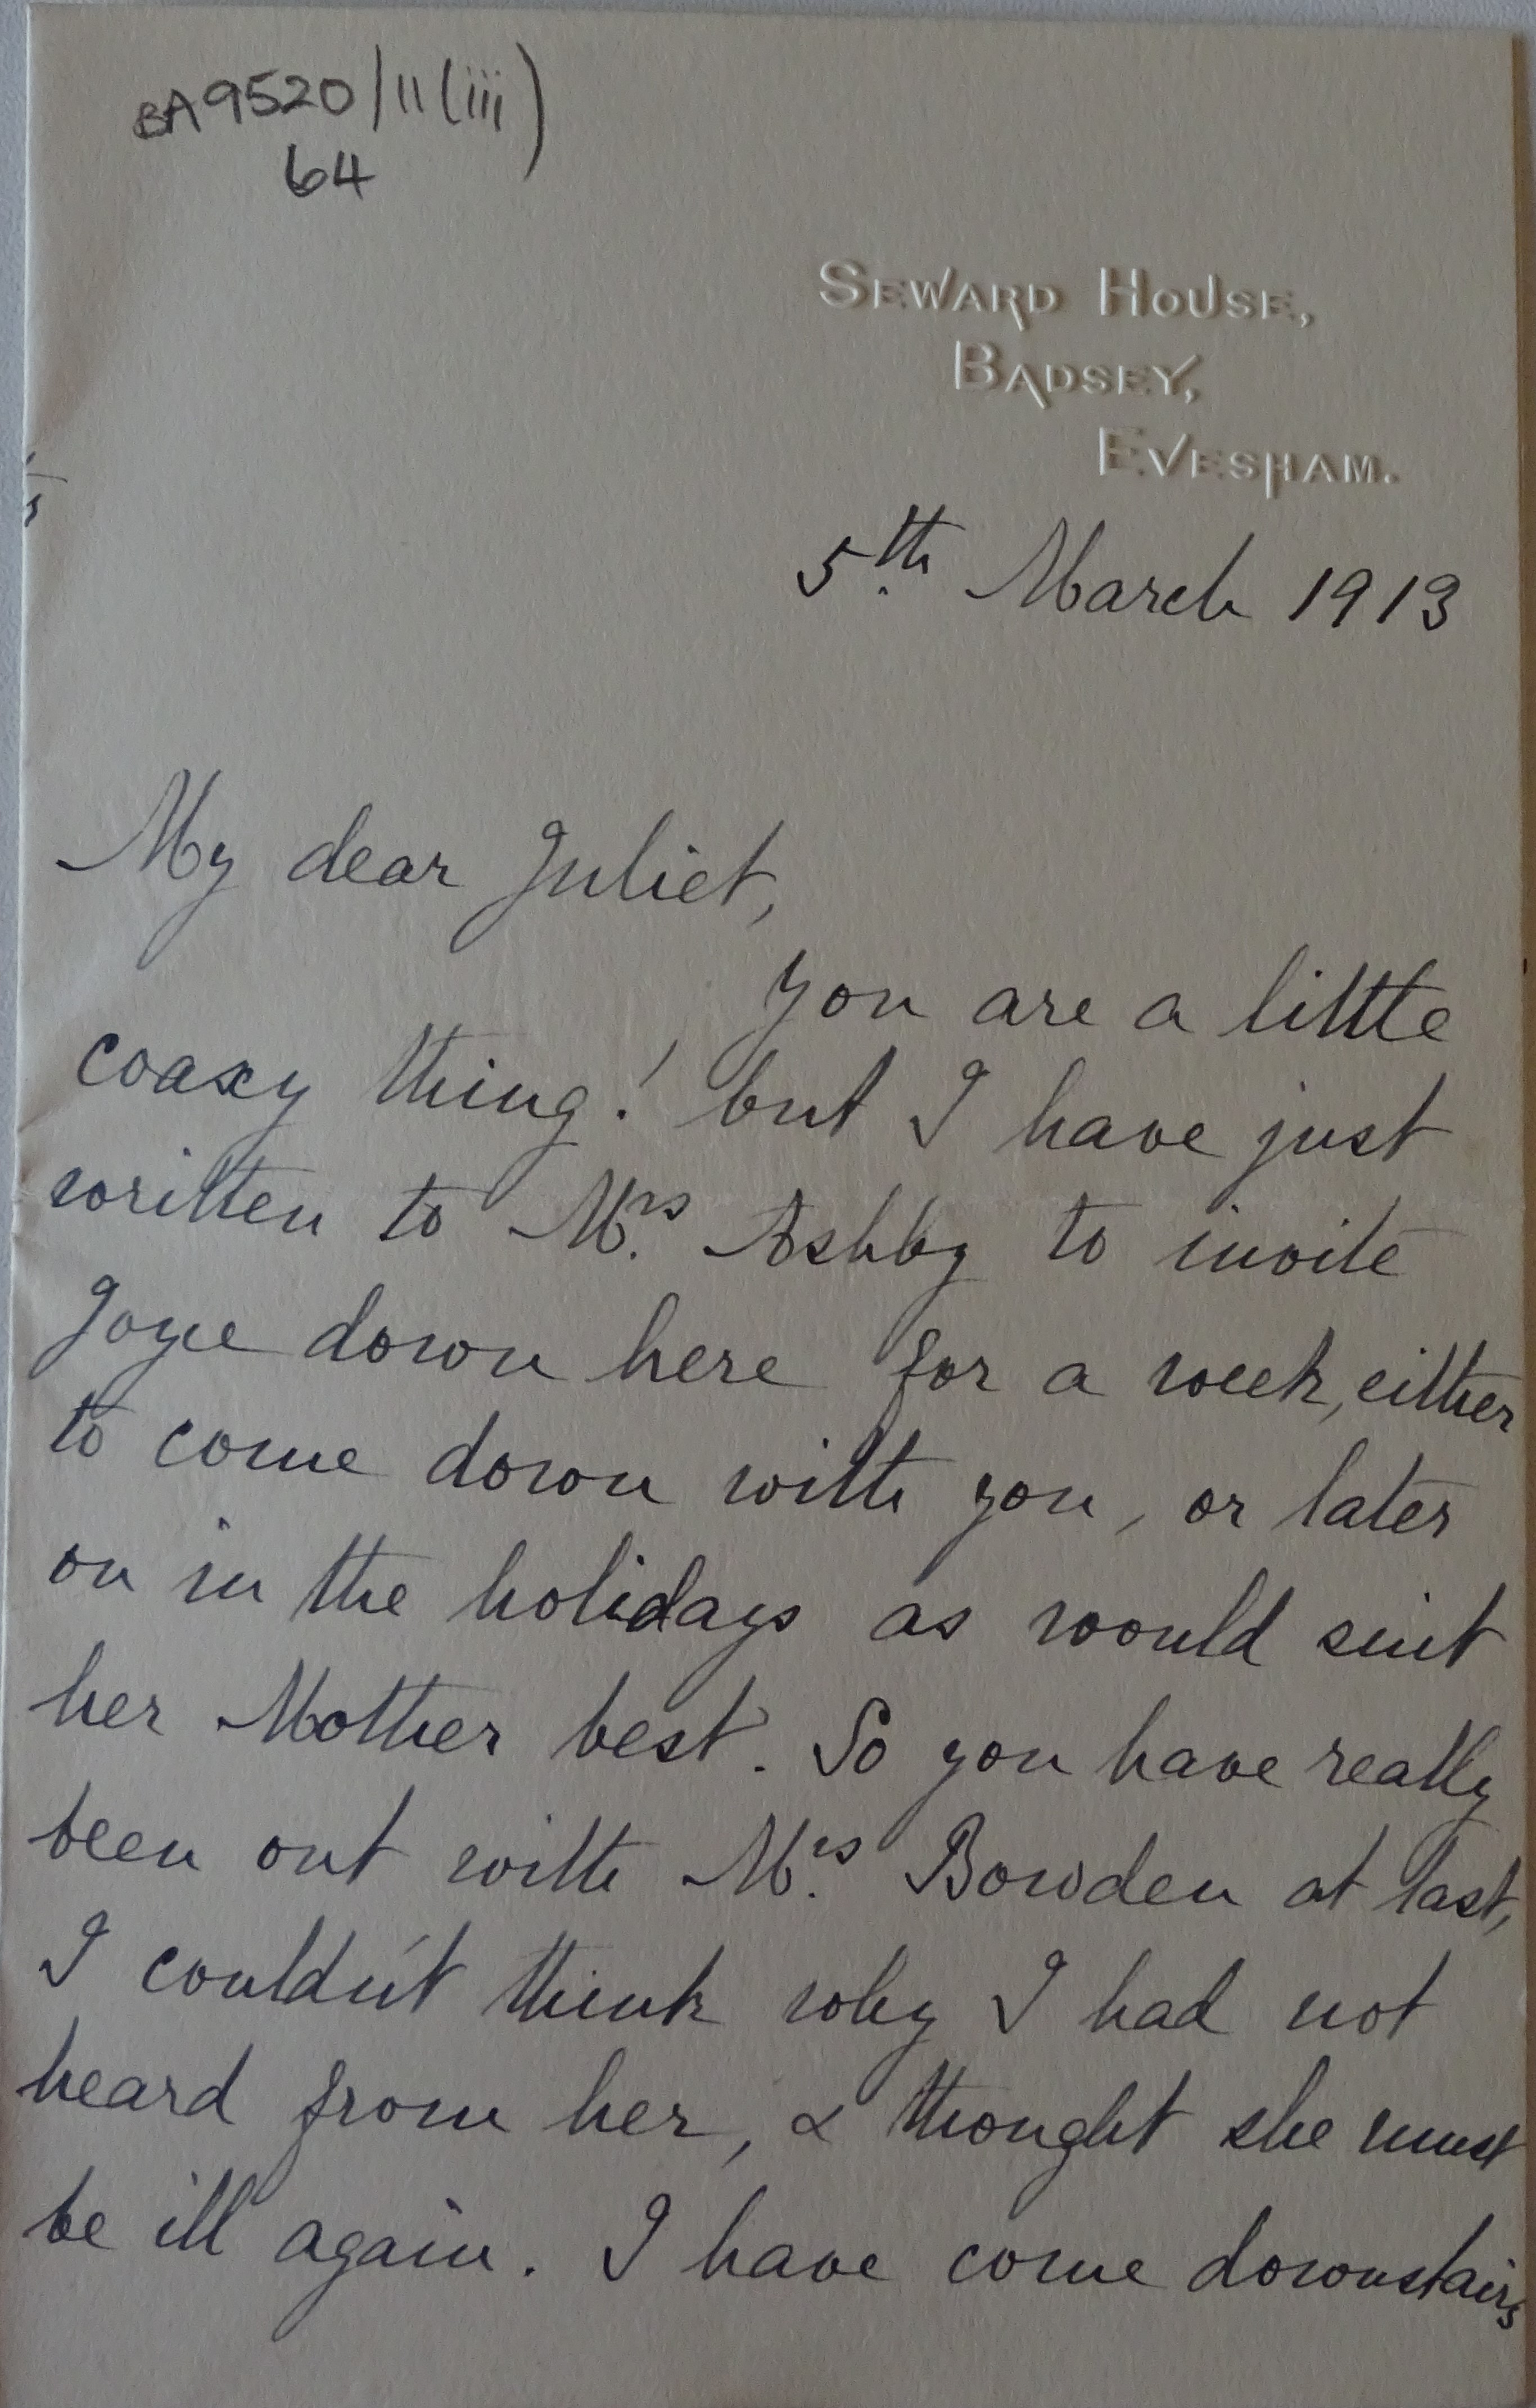 BA9520/11(iii)
64
SEWARD HOUSE,
BADSEY,
EVESHAM.
5th March 1913
My dear Juliet,
You are a little
coaxy thing! but I have just
written to Mrs Ashby to invite
Joyce down here for a week, either
to come down with you, or later
on in the holidays as would suit
her Mother best. So you have really
been out with Mrs Bowden at last,
I couldn't think why I had not
heard from her, & thought she must
be ill again. I have come downstairs